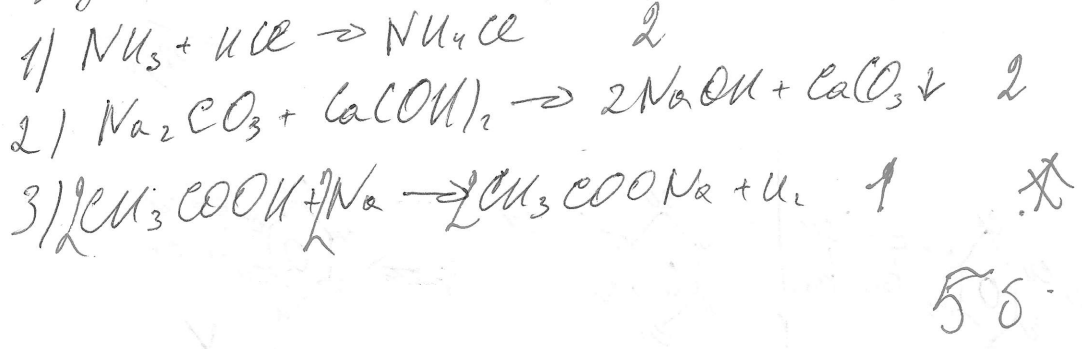 1) NH₃ + HCl → NH₄Cl 2
2) Na₂CO₃ + Ca(OH)₂ → 2NaOH + CaCO₃↓ 2
3) 2CH₃COOH + 2Na → 2CH₃COONa + H₂ 1
5 б.